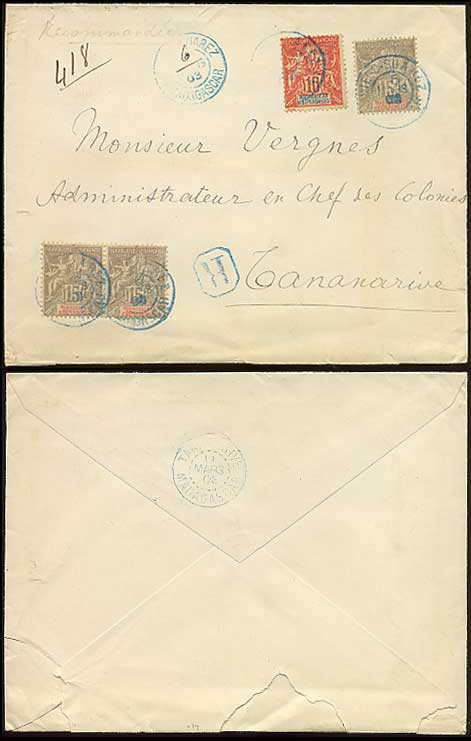 Recommandée
418
6
SUAREZ
03
MADAGASCAR
10
15
Monsieur Vergnes
Administrateur en Chef des Colonies
Tananarive
15
15
R
11
MARS
03
MADAGASCAR